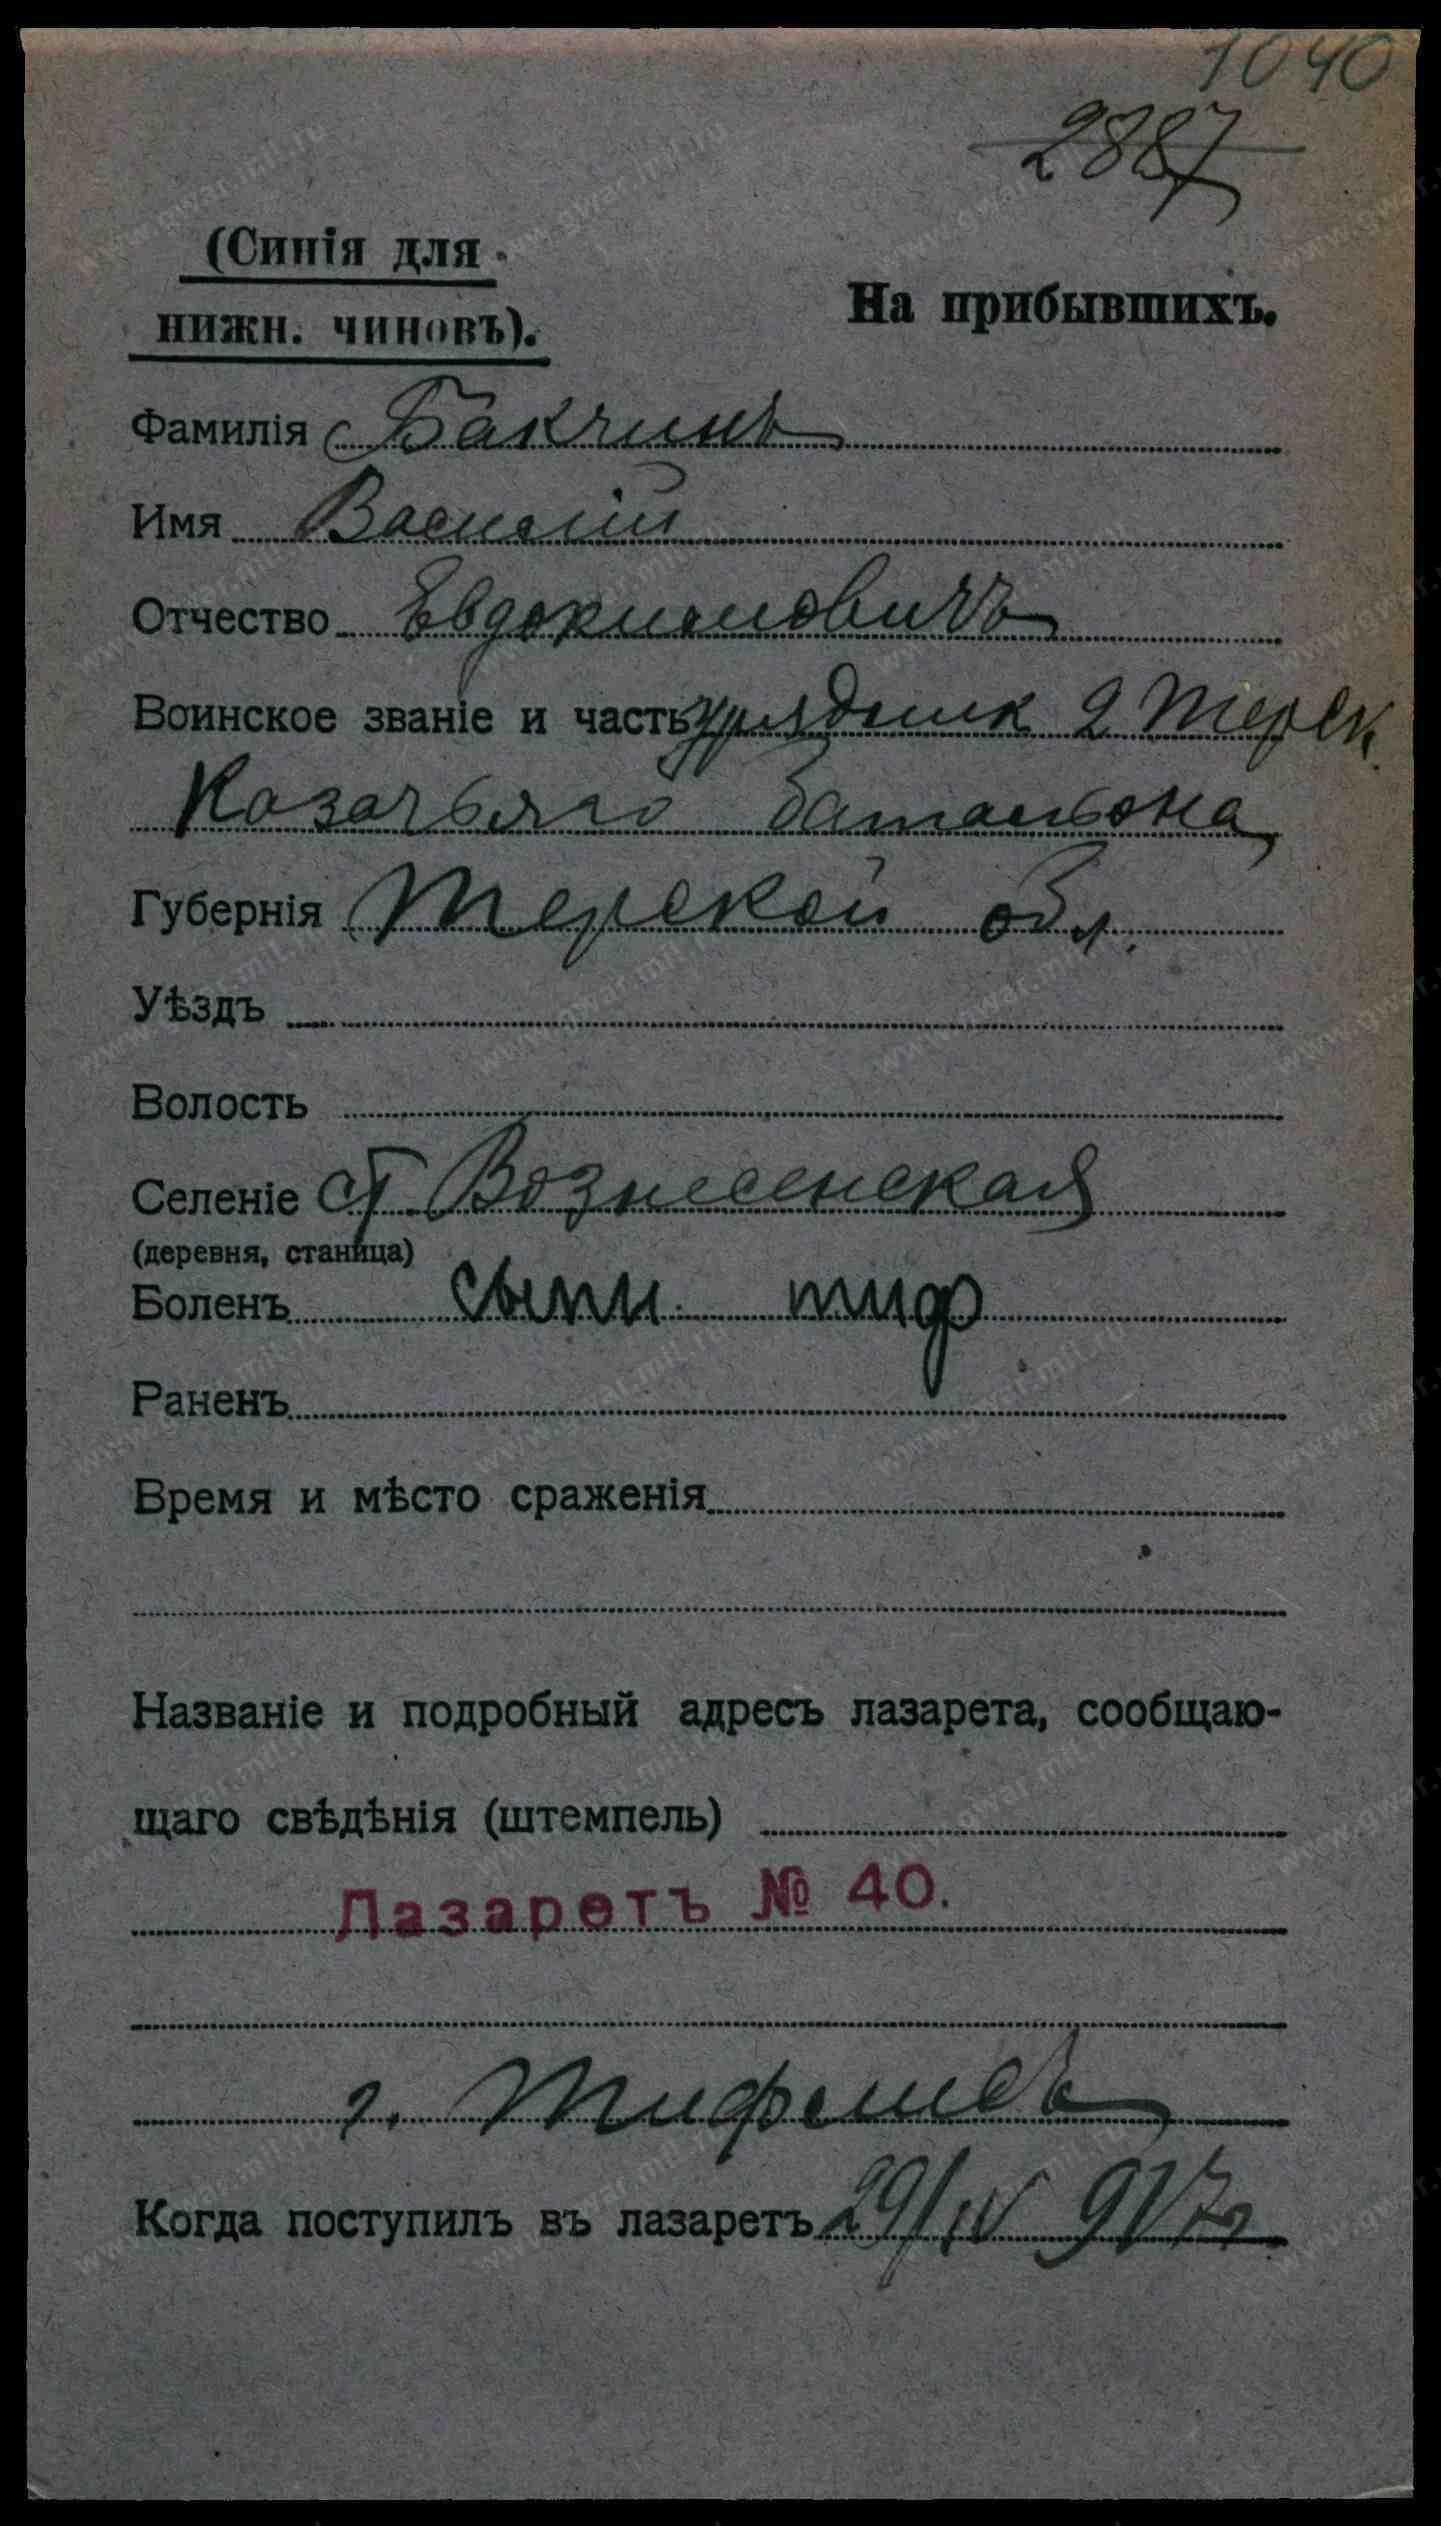 1040
2887
(Синія для
нижн. чиновъ).
На прибывшихъ.
Фамилія Бакчинъ
Имя Василій
Отчество Евдокимовичъ
Воинское званіе и часть урядник 2 Терск.
Казачьяго батальона
Губернія Терской обл.
Уѣздъ
Волость
Селеніе ст. Вознесенская
(деревня, станица)
Боленъ сыпн. тиф
Раненъ
Время и мѣсто сраженія
Названіе и подробный адресъ лазарета, сообщаю-
щаго свѣдѣнія (штемпель)
Лазаретъ № 40.
г. Тифлисъ
Когда поступилъ въ лазаретъ 29/IV 917г